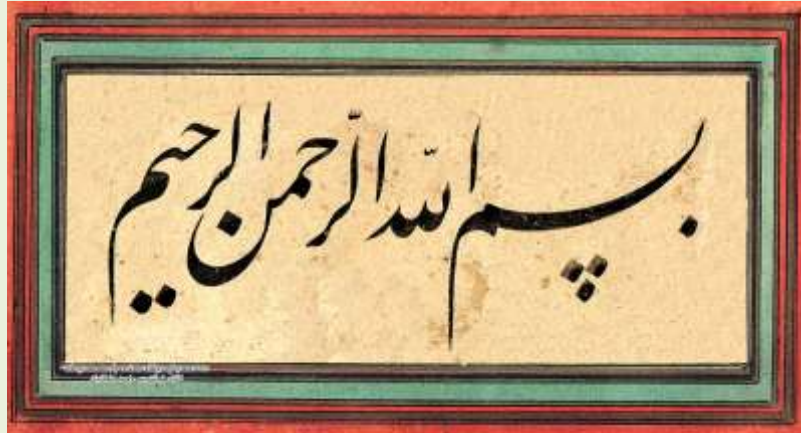 بسم الله الرّحمن الرحیم